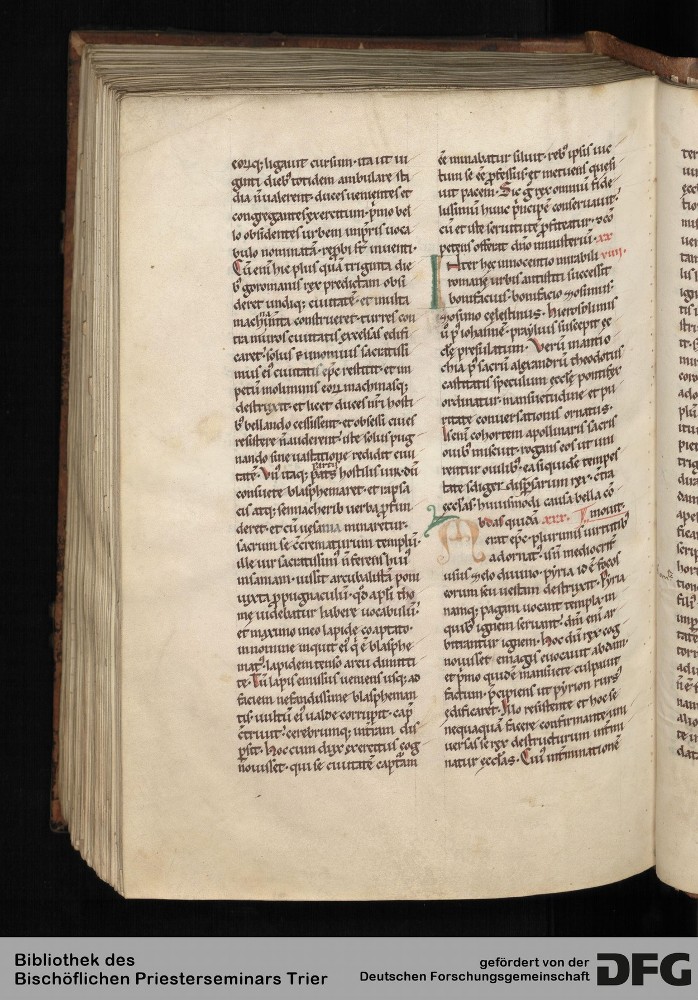 eorūq; ligauit cursum· ita ut ui
ginti dieb; totidem ambulare sta
dia n̄ ualerent· duces uenientes et
congregantes exercitum· p̄mo bel
lo obsidentes urbem impris uoca
bulo nominatā· rep̄bi s̄t inuenti·
Cū eni hic plus quā triginta die
b; goromanis rex predictam obsi
deret undiq; ciuitatē· et multa
machinīta construeret· turres con
tra muros ciuitatis excelsas edifi
caret· solus eunomius sacratissi
mus ei; ciuitatis ep̄c restitit· et im
petū molimnis eorū machinasq;
destruxit· et licet duces nr̄i hosti
b; bellando cessissent· et obsessi ciues
resistere n̄ auderent· iste solus pug
nando sine uastatione redidit ciui
tatē· Vn̄ itaq; hostilis uir· dū
consuete blasphemaret· et rapsa
cis atq; sennacherib uerba p̄ferm
deret· et cū uesania minaretur·
sacrum se c̄crematurum templū·
ille uir sacratissim; n̄ ferens hui;
insaniam· iussit arcubalistā poni
iuxta p̄pugnaculū· qd̄ apl̄i tho
me uidebatur habere uocabulū·
et maximo in eo lapide coaptato·
in nomine inquit ei; q̄ ē blasphe
mat; lapidem tenso arcu dimitti
te· Tū lapis emissus ueniens usq; ad
faciem nefandissime blaspheman
tis uultū ei; ualde corrupit· cap;
c̄triuit· cerebrumq; int̄ram dis
p̄sit· hoc cum dux exercitus cog
nouisset· qui se ciuitatē captam
eē minabatur siluit· reb; ipsis uic
tum se eē p̄fessus· et metuens quesi
uit pacem· Sic ḡ rex omniū fide
lissimū hunc principē conseruauit·
cū et iste seruitutē p̄fiteatur·
petens offerat dn̄o ministeriū· xx
Inter hec innocentio mirabili viiii.
romane urbis antistiti successit
bonifacius· bonifacio zosimus·
zosimo celestinus· hierosolimis
ū p; iohannē· praylius suscepit ec
clē presulatum· Verū in antio
chia p; sacrū alexandrū theodotus
castitatis speculum ecclē pontifex
ordinatur· mansuetudine et pu
ritate conuersationis ornatus·
Isenī cohortem apollinaris sacris
ouib; miscuit· rogans eos ut uni
rentur ouilib;· ea siquidē tempes
tate isdiger disp̄sarum rex· c̄tra
eccl̄as huiusmodi causa bella cō
Abdas quidā xxx. mouit·
erat ep̄c· plurimis uirtutib;
adornat;· un̄ mediocrit̄
usus zelo diuino· pyria id ē focos
eorum seu uestam destruxit· Pyria
namq; pagani uocant templa· in
quib; ignem seruant· dm̄ eni ar
bitrantur ignem· hoc dū rex cog
nouisset· emagis euocauit abdam·
et p̄mo quidē mansuete culpauit
factum· p̄cipiens ut pyrion rurs;
edificaret· Illo resistente et hoc se
nequaquā facere confirmante· uni
uersas se rex destructurum int̄mi
natur eccl̄as· Cui; int̄minationē
Bibliothek des
Bischöflichen Priesterseminars Trier
gefördert von der
Deutschen Forschungsgemeinschaft
DFG